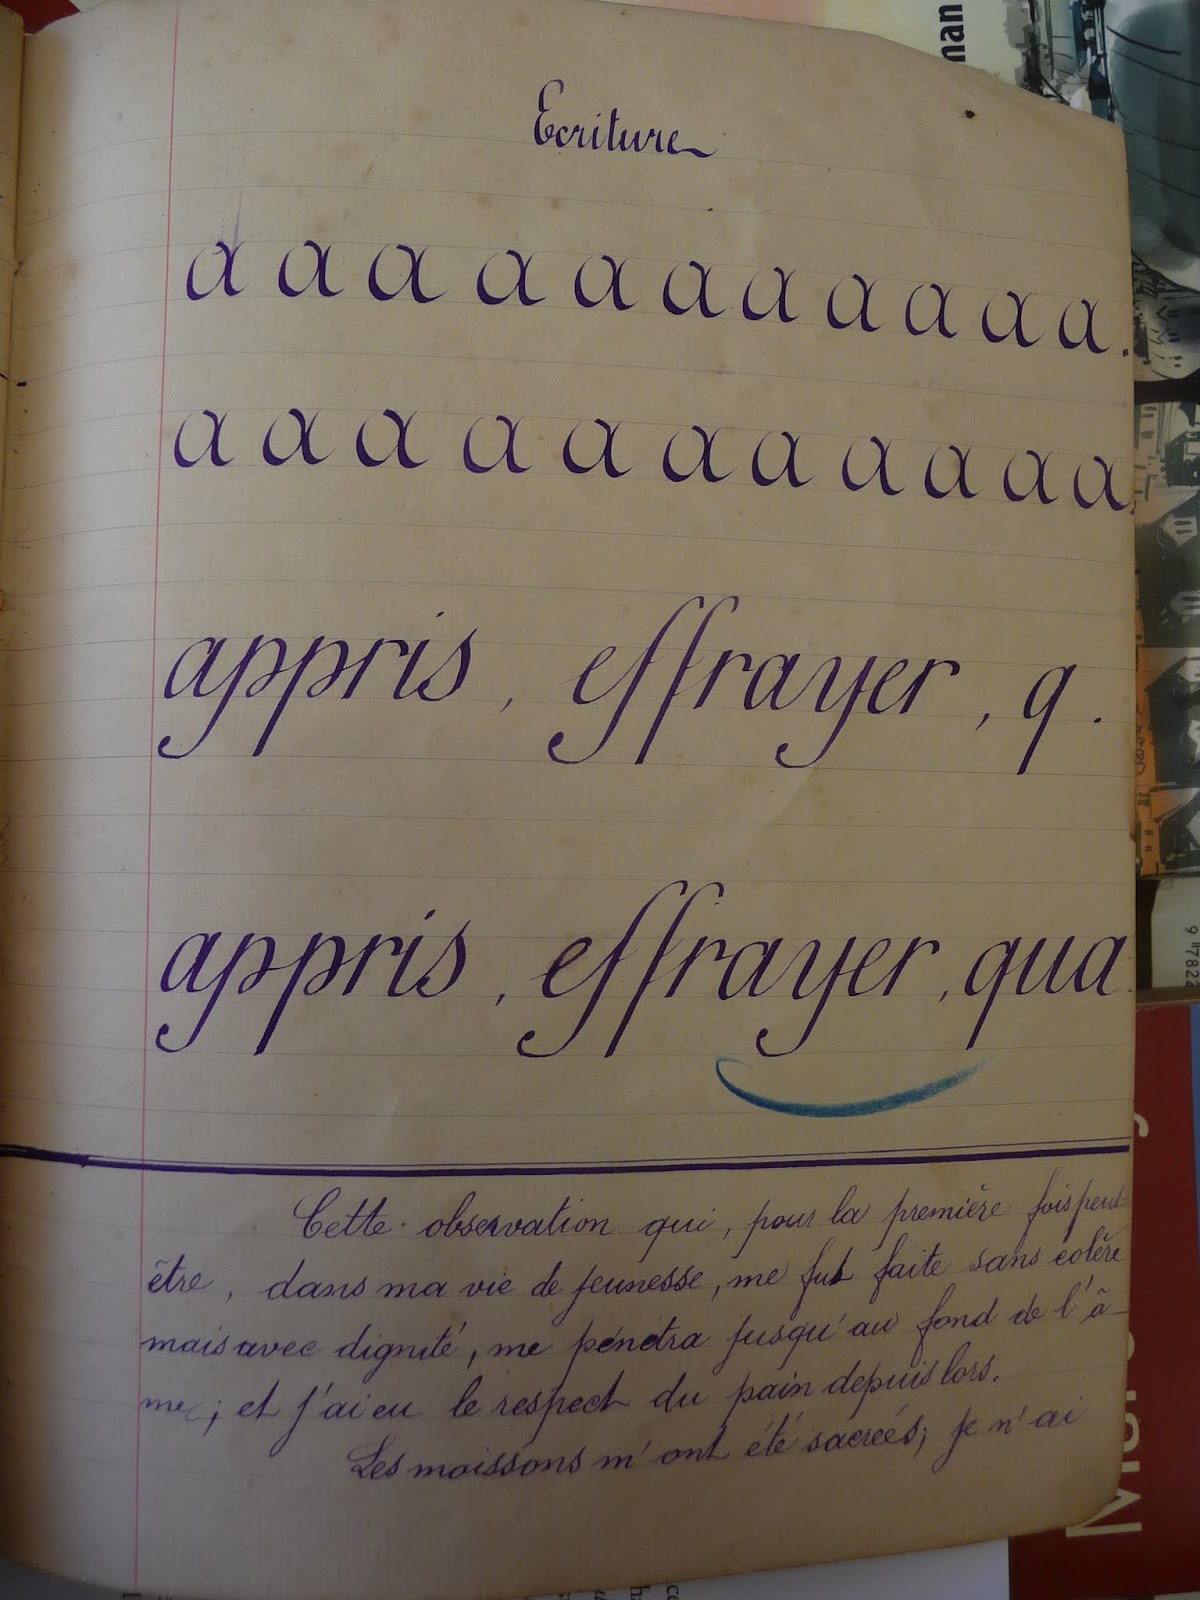 Ecriture
a a a a a a a a a a a.
a a a a a a a a a a a.
appris, effrayer, q.
appris, effrayer, qua.
Cette observation qui, pour la première fois peut-
être, dans ma vie de jeunesse, me fut faite sans colère
mais avec dignité, me pénétra jusqu'au fond de l'â-
me; et j'ai eu le respect du pain depuis lors.
Les moissons m'ont été sacrées; je n'ai
man
9 "782